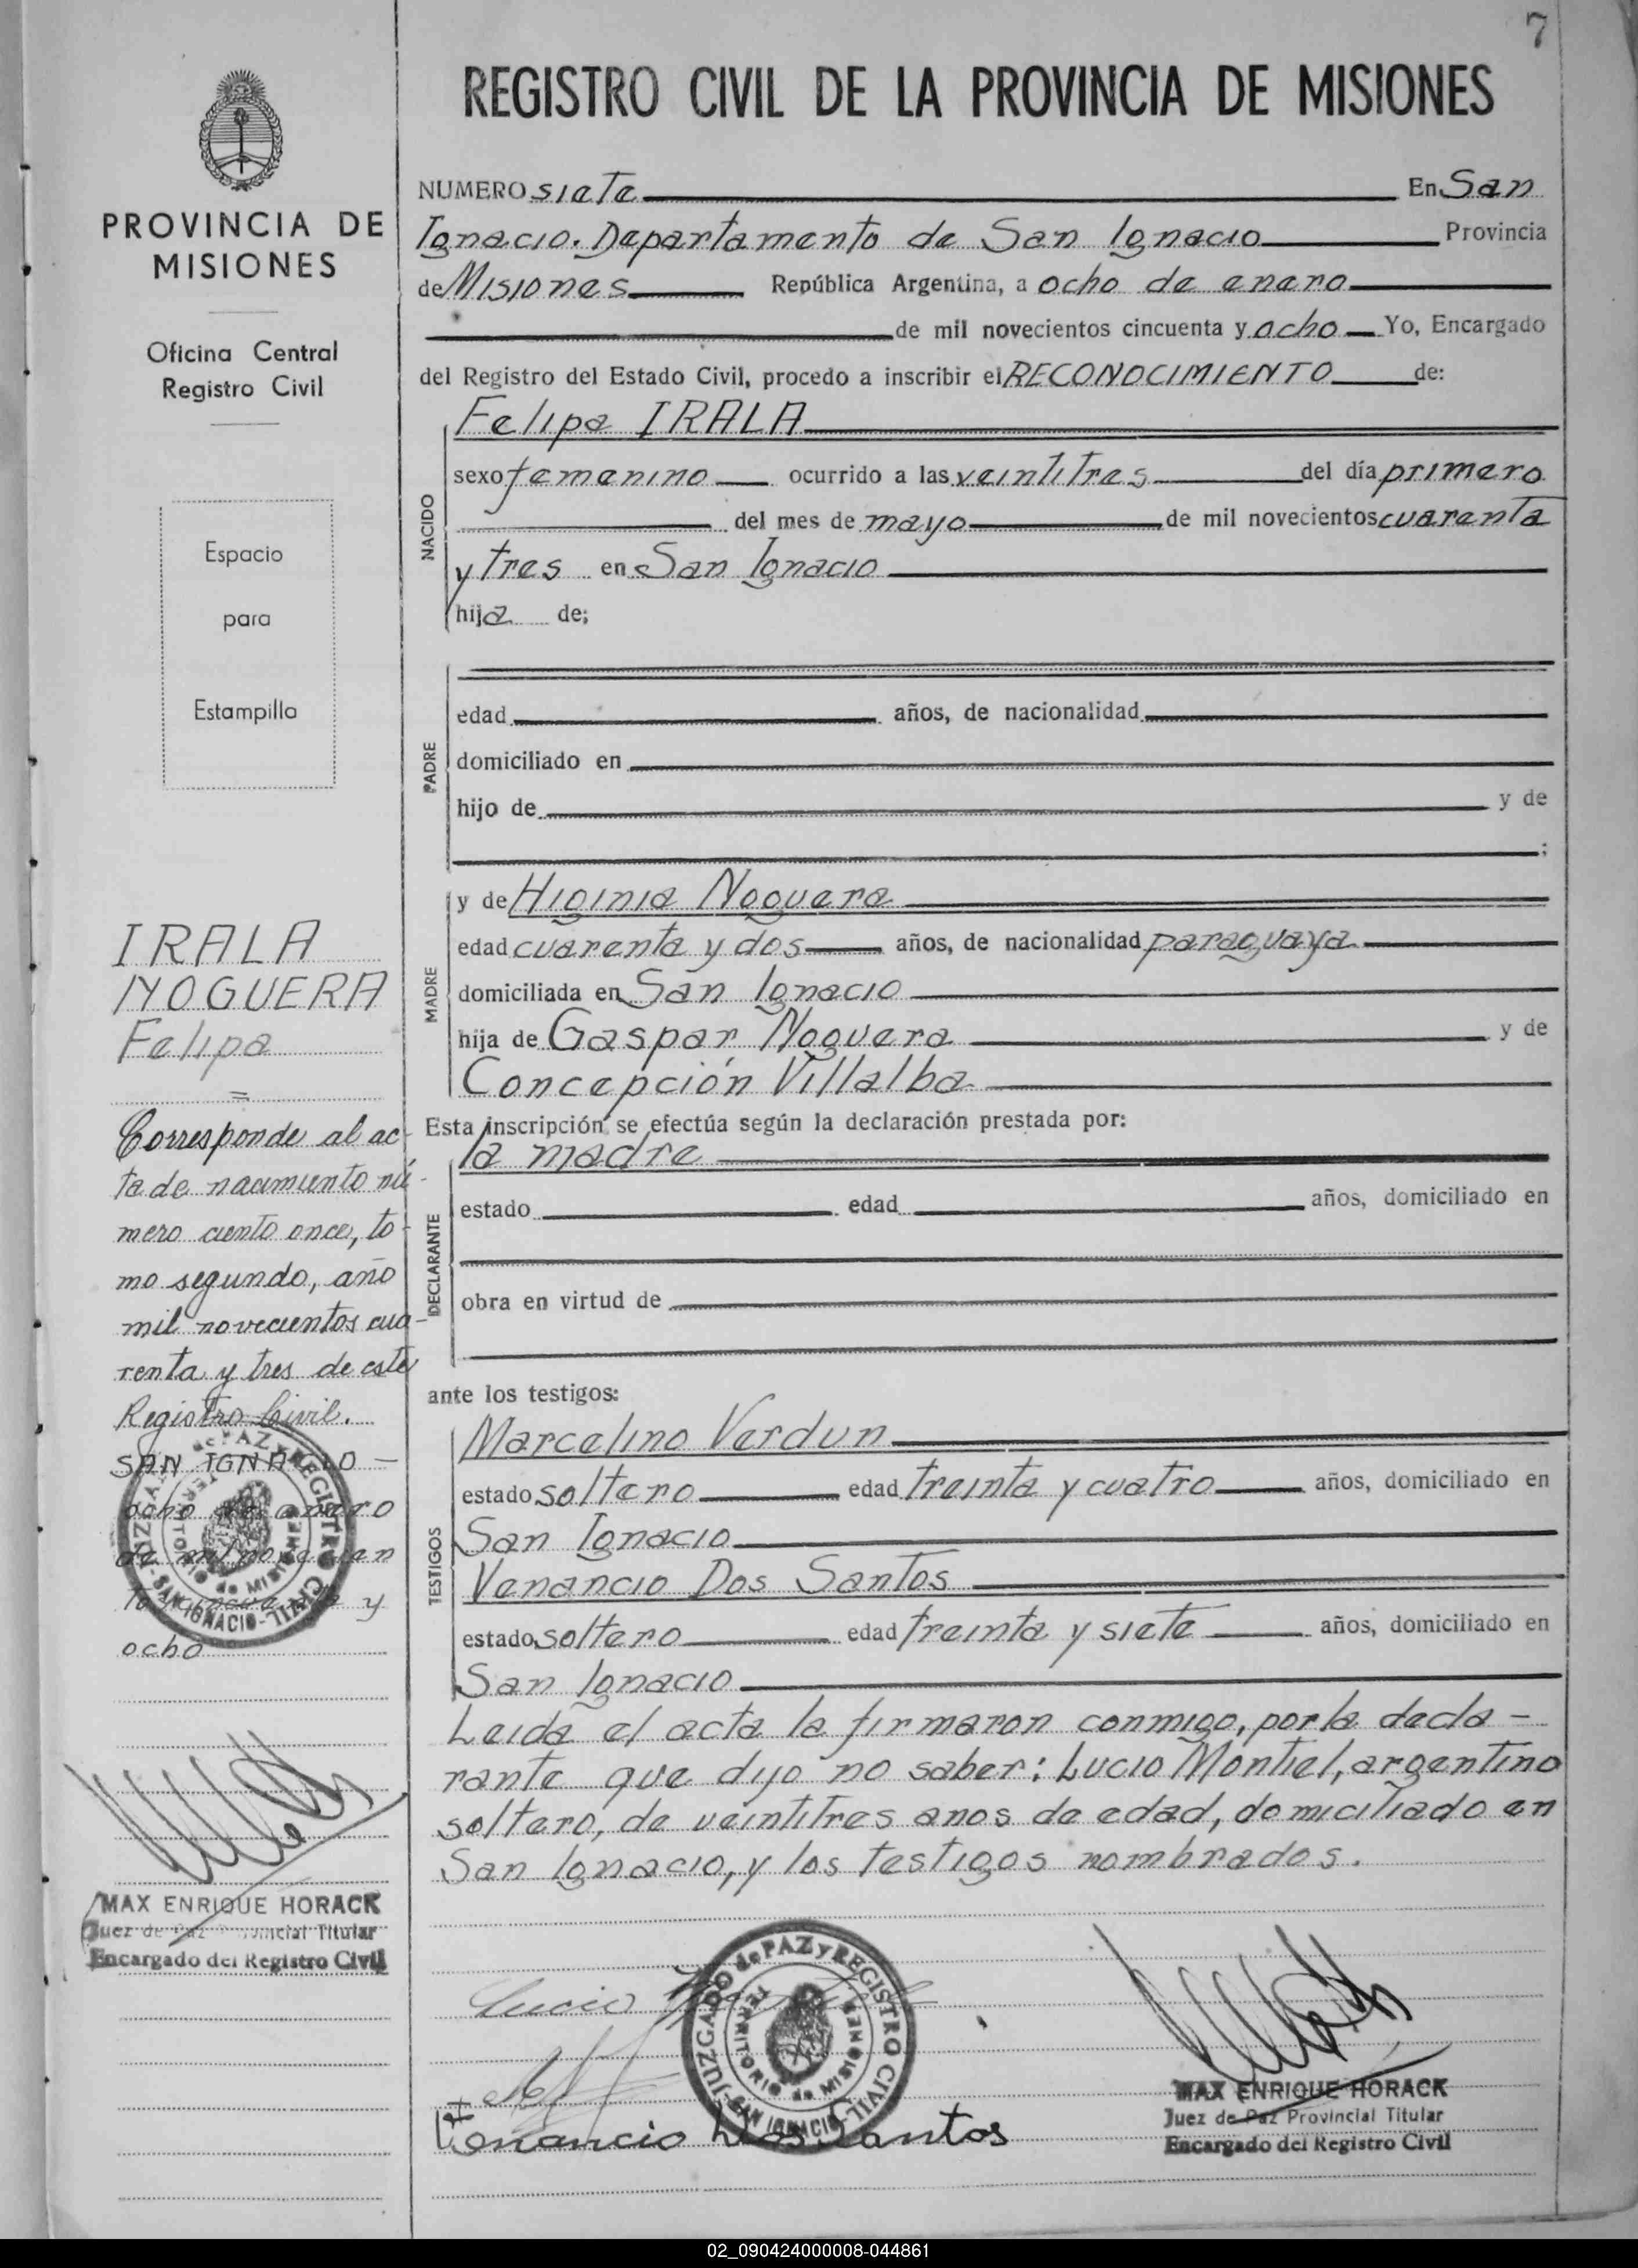 7
REGISTRO CIVIL DE LA PROVINCIA DE MISIONES
PROVINCIA DE
MISIONES
Oficina Central
Registro Civil
Espacio
para
Estampilla
IRALA
NOGUERA
Felipa
=
Corresponde al ac-
ta de nacimiento nú-
mero ciento once, to-
mo segundo, año
mil novecientos cua-
renta y tres de este
Registro Civil.
SAN IGNACIO —
ocho de enero
de mil novecien
tos cincuenta y
ocho
MAX ENRIQUE HORACK
Juez de Paz Provincial Titular
Encargado del Registro Civil
NUMERO siete En San
Ignacio. Departamento de San Ignacio Provincia
de Misiones República Argentina, a ocho de enero
de mil novecientos cincuenta y ocho Yo, Encargado
del Registro del Estado Civil, procedo a inscribir el RECONOCIMIENTO de:
NACIDO
Felipa IRALA
sexo femenino ocurrido a las veintitres del día primero
del mes de mayo de mil novecientos cuarenta
y tres en San Ignacio
hija de;
PADRE
edad años, de nacionalidad
domiciliado en
hijo de y de
;
MADRE
y de Higinia Noguera
edad cuarenta y dos años, de nacionalidad paraguaya
domiciliada en San Ignacio
hija de Gaspar Noguera y de
Concepción Villalba
Esta inscripción se efectúa según la declaración prestada por:
DECLARANTE
la madre
estado edad años, domiciliado en
obra en virtud de
ante los testigos:
TESTIGOS
Marcelino Verdun
estado soltero edad treinta y cuatro años, domiciliado en
San Ignacio
Venancio Dos Santos
estado soltero edad treinta y siete años, domiciliado en
San Ignacio
Leida el acta la firmaron conmigo, por la decla-
rante que dijo no saber: Lucio Montiel, argentino
soltero, de veintitres anos de edad, domiciliado en
San Ignacio, y los testigos nombrados.
Lucio Montiel
Venancio Dos Santos
JUZGADO de PAZ y REGISTRO CIVIL - SAN IGNACIO -
TERRITORIO de MISIONES
MAX ENRIQUE HORACK
Juez de Paz Provincial Titular
Encargado del Registro Civil
02_090424000008-044861